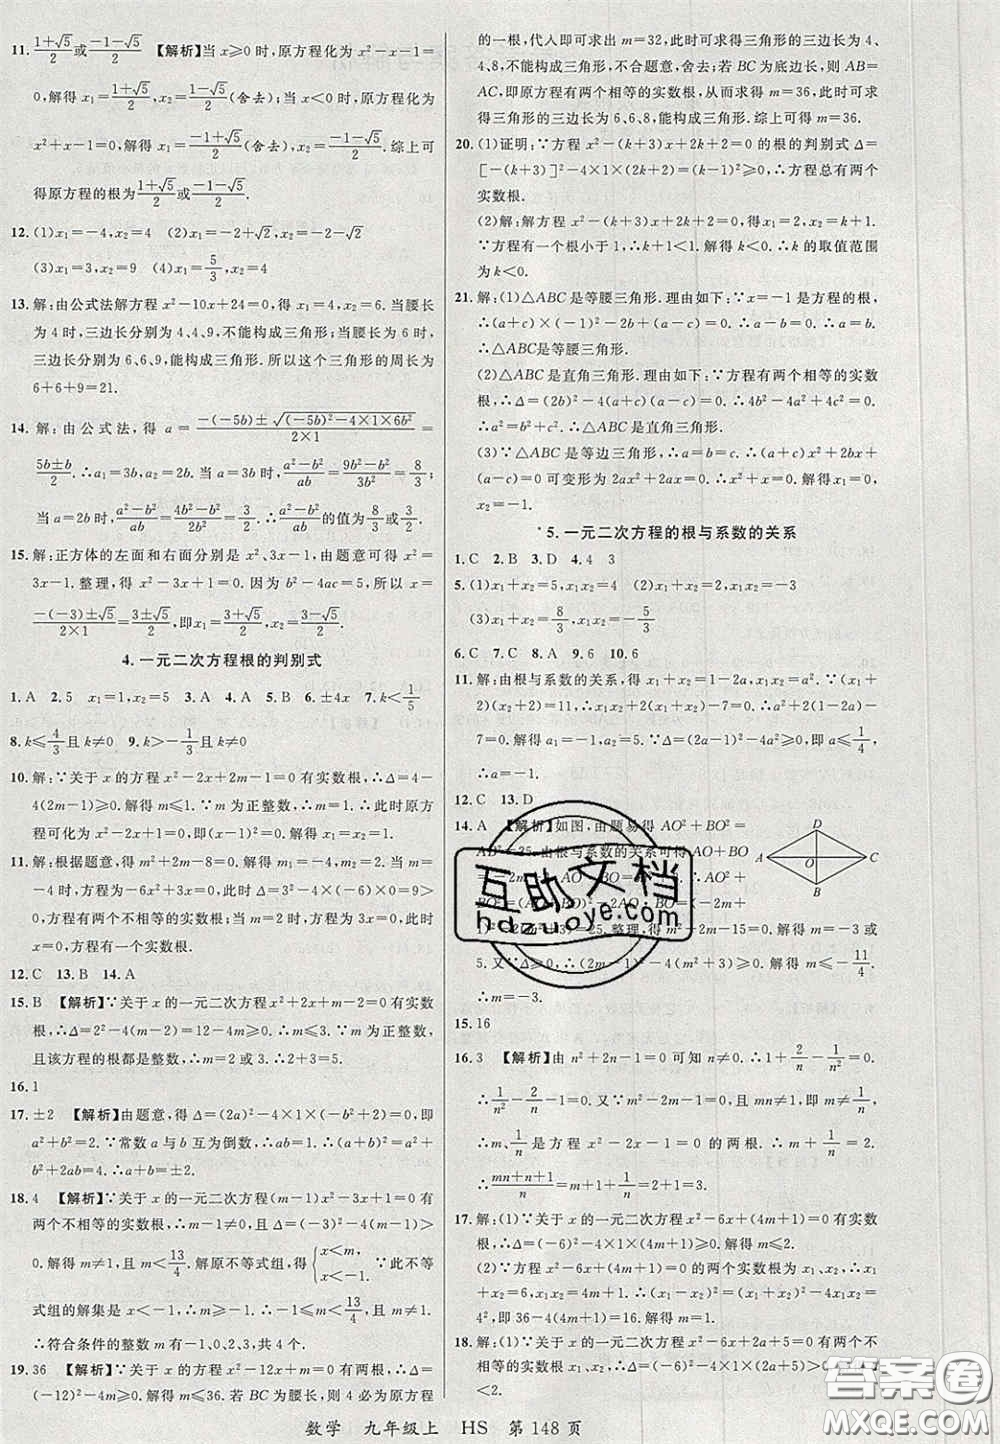 11. (1+√5)/2或(-1-√5)/2 【解析】当x≥0时,原方程化为x²-x-1=
0,解得x₁=(1+√5)/2,x₂=(1-√5)/2(舍去);当x<0时,原方程化为
x²+x-1=0,解得x₁=(-1+√5)/2(舍去),x₂=(-1-√5)/2.综上可
得原方程的根为(1+√5)/2或(-1-√5)/2.
12. (1)x₁=-4,x₂=4 (2)x₁=-2+√2,x₂=-2-√2
(3)x₁=3,x₂=9 (4)x₁=5/3,x₂=4
13. 解:由公式法解方程x²-10x+24=0,得x₁=4,x₂=6.当腰长
为4时,三边长分别为4、4、9,不能构成三角形;当腰长为6时,
三边长分别为6、6、9,能构成三角形.所以这个三角形的周长为
6+6+9=21.
14. 解:由公式法,得a=(-(-5b)±√((-5b)²-4×1×6b²))/(2×1)=
(5b±b)/2.∴a₁=3b,a₂=2b.当a=3b时,(a²-b²)/ab=(9b²-b²)/3b²=8/3;
当a=2b时,(a²-b²)/ab=(4b²-b²)/2b²=3/2.∴(a²-b²)/ab的值为8/3或3/2.
15. 解:正方体的左面和右面分别是x²、3x-1,由题意可得x²=
3x-1.整理,得x²-3x+1=0.因为b²-4ac=5>0,所以x=
(-(-3)±√5)/(2×1)=(3±√5)/2,即x₁=(3+√5)/2,x₂=(3-√5)/2.
4.一元二次方程根的判别式
1. A 2. 5 x₁=1,x₂=5 3. A 4. A 5. B 6. ±4x 7. k<1/5
8. k≤4/3且k≠0 9. k>-1/3且k≠0
10. 解:∵关于x的方程x²-2x+2m-1=0有实数根,∴Δ=4-
4(2m-1)≥0.解得m≤1.∵m为正整数,∴m=1.∴此时原方
程可化为x²-2x+1=0,即(x-1)²=0.解得x₁=x₂=1.
11. 解:根据题意,得m²+2m-8=0.解得m₁=2,m₂=-4.当m=
-4时,方程为-6x²+3x+1=0.∵Δ=3²-4×(-6)×1=33>
0,∴方程有两个不相等的实数根;当m=2时,方程为3x+1=
0,∴方程有一个实数根.
12. C 13. B 14. A
15. B 【解析】∵关于x的一元二次方程x²+2x+m-2=0有实数
根,∴Δ=2²-4(m-2)=12-4m≥0.∴m≤3.∵m为正整数,
且该方程的根都是整数,∴m=2或3.∴2+3=5.
16. 1
17. ±2 【解析】由题意,得Δ=(2a)²-4×1×(-b²+2)=0,即
a²+b²=2.∵常数a与b互为倒数,∴ab=1.∴(a+b)²=a²+
b²+2ab=2+2×1=4.∴a+b=±2.
18. 4 【解析】∵关于x的一元二次方程(m-1)x²-3x-1=0有
两个不相等的实数根,∴m-1≠0,且Δ=(-3)²-4(m-1)>
0.解得m≠1,且m<13/4.∵解原不等式组,得{x<m, x<-1.∵不等
式组的解集是x<-1,∴m≥-1.∴-1≤m<13/4,且m≠1.
∴符合条件的整数m有-1,0,2,3,共4个.
19. 36 【解析】∵关于x的方程x²-12x+m=0有实数根,∴Δ=
(-12)²-4m≥0.解得m≤36.若BC为腰长,则4必为原方程
的一根,代入即可求出m=32,此时可求得三角形的三边长为4、
4、8,不能构成三角形,不合题意,舍去;若BC为底边长,则AB=
AC,即原方程有两个相等的实数根.∴Δ=0,解得m=36,此时求
得三角形的三边长为6、6、4,能构成三角形.综上可得m=36.
20. (1)证明:∵方程x²-(k+3)x+2k+2=0的根的判别式Δ=
[-(k+3)]²-4×1×(2k+2)=(k-1)²≥0,∴方程总有两个
实数根.
(2)解:解方程x²-(k+3)x+2k+2=0,得x₁=2,x₂=k+1.
∵方程有一个根小于1,∴k+1<1.解得k<0.∴k的取值范围
为k<0.
21. 解:(1)△ABC是等腰三角形.理由如下:∵x=-1是方程的根,
∴(a+c)×(-1)²-2b+(a-c)=0.∴a-b=0.∴a=b.
∴△ABC是等腰三角形.
(2)△ABC是直角三角形.理由如下:∵方程有两个相等的实数
根,∴Δ=(2b)²-4(a+c)(a-c)=0.∴4b²-4a²+4c²=0.
∴a²=b²+c².∴△ABC是直角三角形.
(3)∵△ABC是等边三角形,∴a=b=c.∴(a+c)x²+2bx+(a-c)=
0可变形为2ax²+2ax=0.∴x²+x=0.解得x₁=0,
x₂=-1.
*5.一元二次方程的根与系数的关系
1. C 2. B 3. D 4. 4 3
5. (1)x₁+x₂=5,x₁x₂=4 (2)x₁+x₂=2,x₁x₂=-3
(3)x₁+x₂=8/3,x₁x₂=-5/3
6. C 7. C 8. A 9. 6 10. 6
11. 解:由根与系数的关系,得x₁+x₂=1-2a,x₁x₂=a².∵(x₁+
2)(x₂+2)=11,
-7=0.解得a₁=-1,a₂=5.
∴a=-1.
12. C 13. D
14. A 【解析】如图,由题易得AO²+BO²=
AB²=25.由根与系数的关系可得AO+BO
D
A
O
C
B
5.
∴m=-3.
15. 16
16. 3 【解析】由n²+2n-1=0可知n≠0.∴1+2/n-1/n²=0.
∴1/n²-2/n-1=0.又∵m²-2m-1=0,且mn≠1,即m≠1/n,
∴m、1/n是方程x²-2x-1=0的两根.∴m+1/n=2.
∴(mn+n+1)/n=m+1+1/n=2+1=3.
17. 解:(1)∵关于x的一元二次方程x²-6x+(4m+1)=0有实数
根,∴Δ=(-6)²-4×1×(4m+1)≥0.解得m≤2.
(2)∵方程x²-6x+(4m+1)=0的两个实数根为x₁、x₂,∴x₁+
x₂=6,x₁x₂=4m+1.∴(x₁-x₂)²=(x₁+x₂)²-4x₁x₂=4²,
即36-4(4m+1)=16.解得m=1.
18. 解:(1)∵关于x的一元二次方程x²-6x+2a+5=0有两个不
相等的实数根x₁、x₂,∴Δ=(-6)²-4(2a+5)>0.解得a
<2.
数学 九年级上 HS 第148页
互助文档
hdzuoye.com
答案圈
MXQE.COM